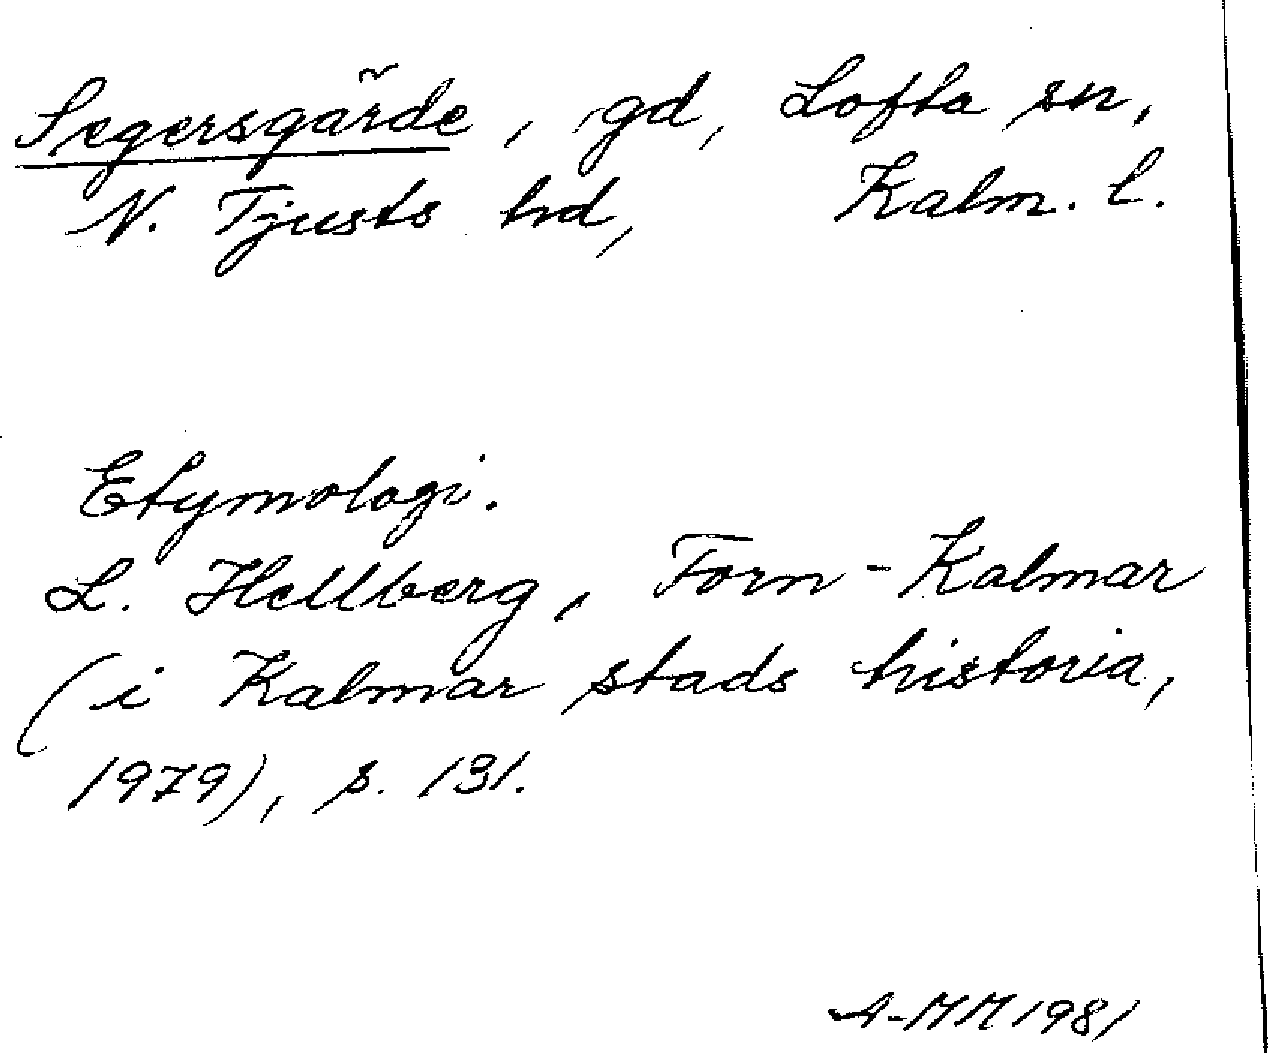 Segersgärde, gd, Lofta sn,
N. Tjusts hd, Kalm. l.
Etymologi.
L. Hellberg, Forn-Kalmar
(i Kalmar stads historia,
1979), s. 131.
A-MM 1981